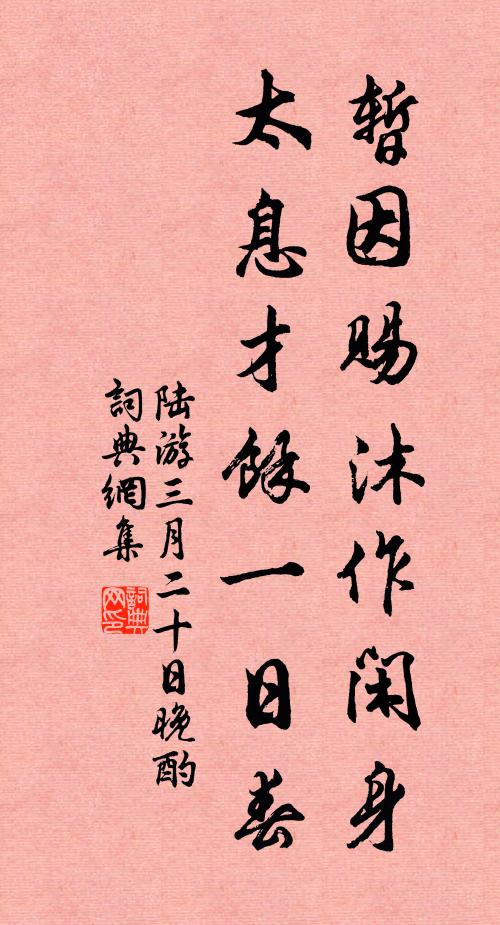 暫因賜沐作閑身
太息才餘一日春
陆游三月二十日晚酌
詞典網集
詞典网印